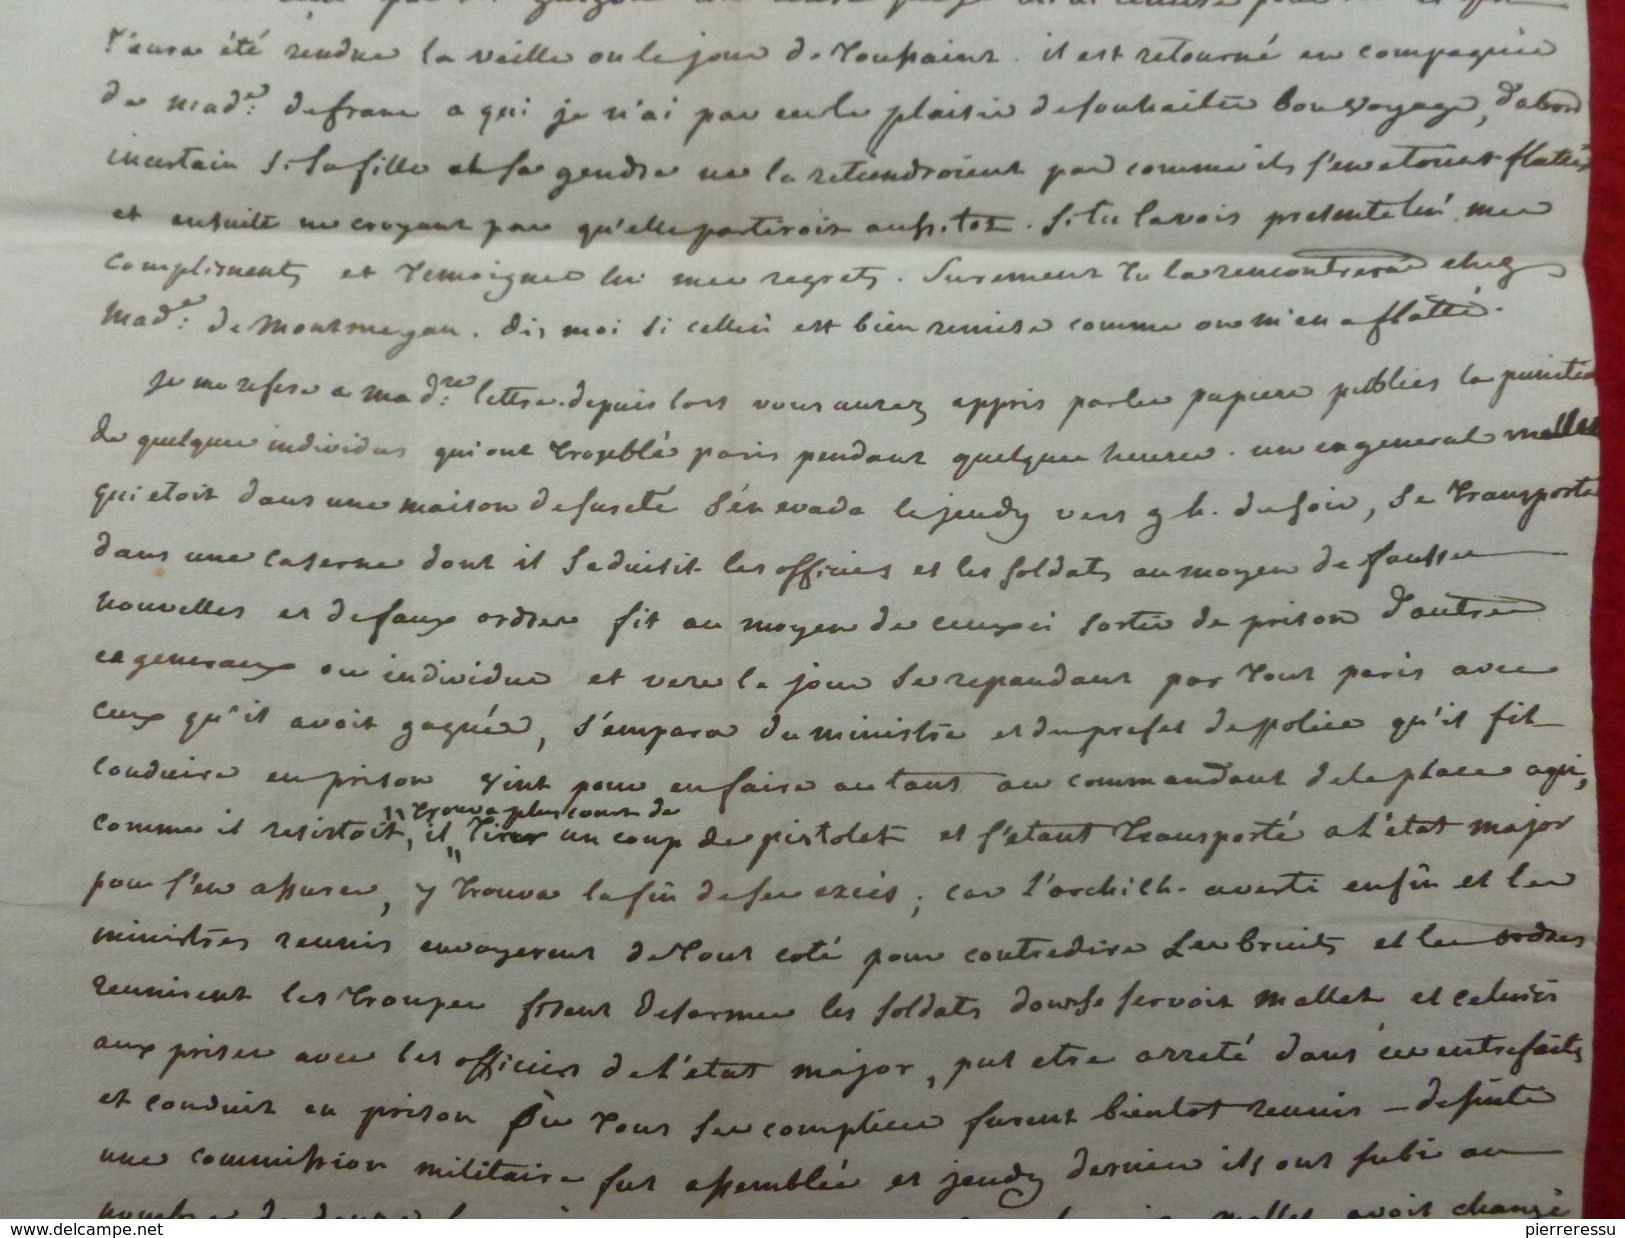 t'aura été rendue la veille ou le jour de Toussaint. il est retourné en compagnie
de mad.e defrane a qui je n'ai pas eu le plaisir de souhaiter bon voyage, d'abord
incertain si sa fille et se gendre ne la retiendroient pas comme ils s'en etoient flattés
et ensuite ne croyant pas qu'elle partiroit aussitot. Si tu la vois presente lui mes
compliments et temoigne lui mes regrets. Surement tu la rencontreras chez
Mad.e de Montmeyan. dis moi si celleci est bien remise comme on m'en a flatté.
je me refere a ma d.re lettre. depuis lors vous aurez appris par les papiers publics la punition
de quelques individus qui ont troublé paris pendant quelques heures. un ex general mallet
qui etoit dans une maison de sureté s'en evada le jeudy vers 9 h. du soir, se transporta
dans une caserne dont il seduisit les officiers et les soldats au moyen de fausses
nouvelles et de faux ordres fit au moyen de ceux ci sortir de prison d'autres
ex generaux ou individus et vers le jour se repandant par tout paris avec
ceux qu'il avoit gagnés, s'empara du ministre et du prefet de police qu'il fit
conduire en prison vint pour en faire autant au commandant de la place a qui,
trouva plus court de
comme il resistoit, il tirer un coup de pistolet et s'etant transporté a l'etat major
pour s'en assurer, y trouva la fin de ses excès; car l'archich. averti enfin et les
ministres reunis envoyerent de tout coté pour contredire les bruits et les ordres
reunirent les troupes firent desarmer les soldats dont se servoit Mallet et celui ci
aux prises avec les officiers de l'état major, put etre arreté dans ces entrefaits
et conduit en prison où tous ses complices furent bientot reunis - de suite
une commission militaire fut assemblée et jeudy dernier ils ont subi au
nombre de douze mallet avoit changé
www.delcampe.net
pierreressu